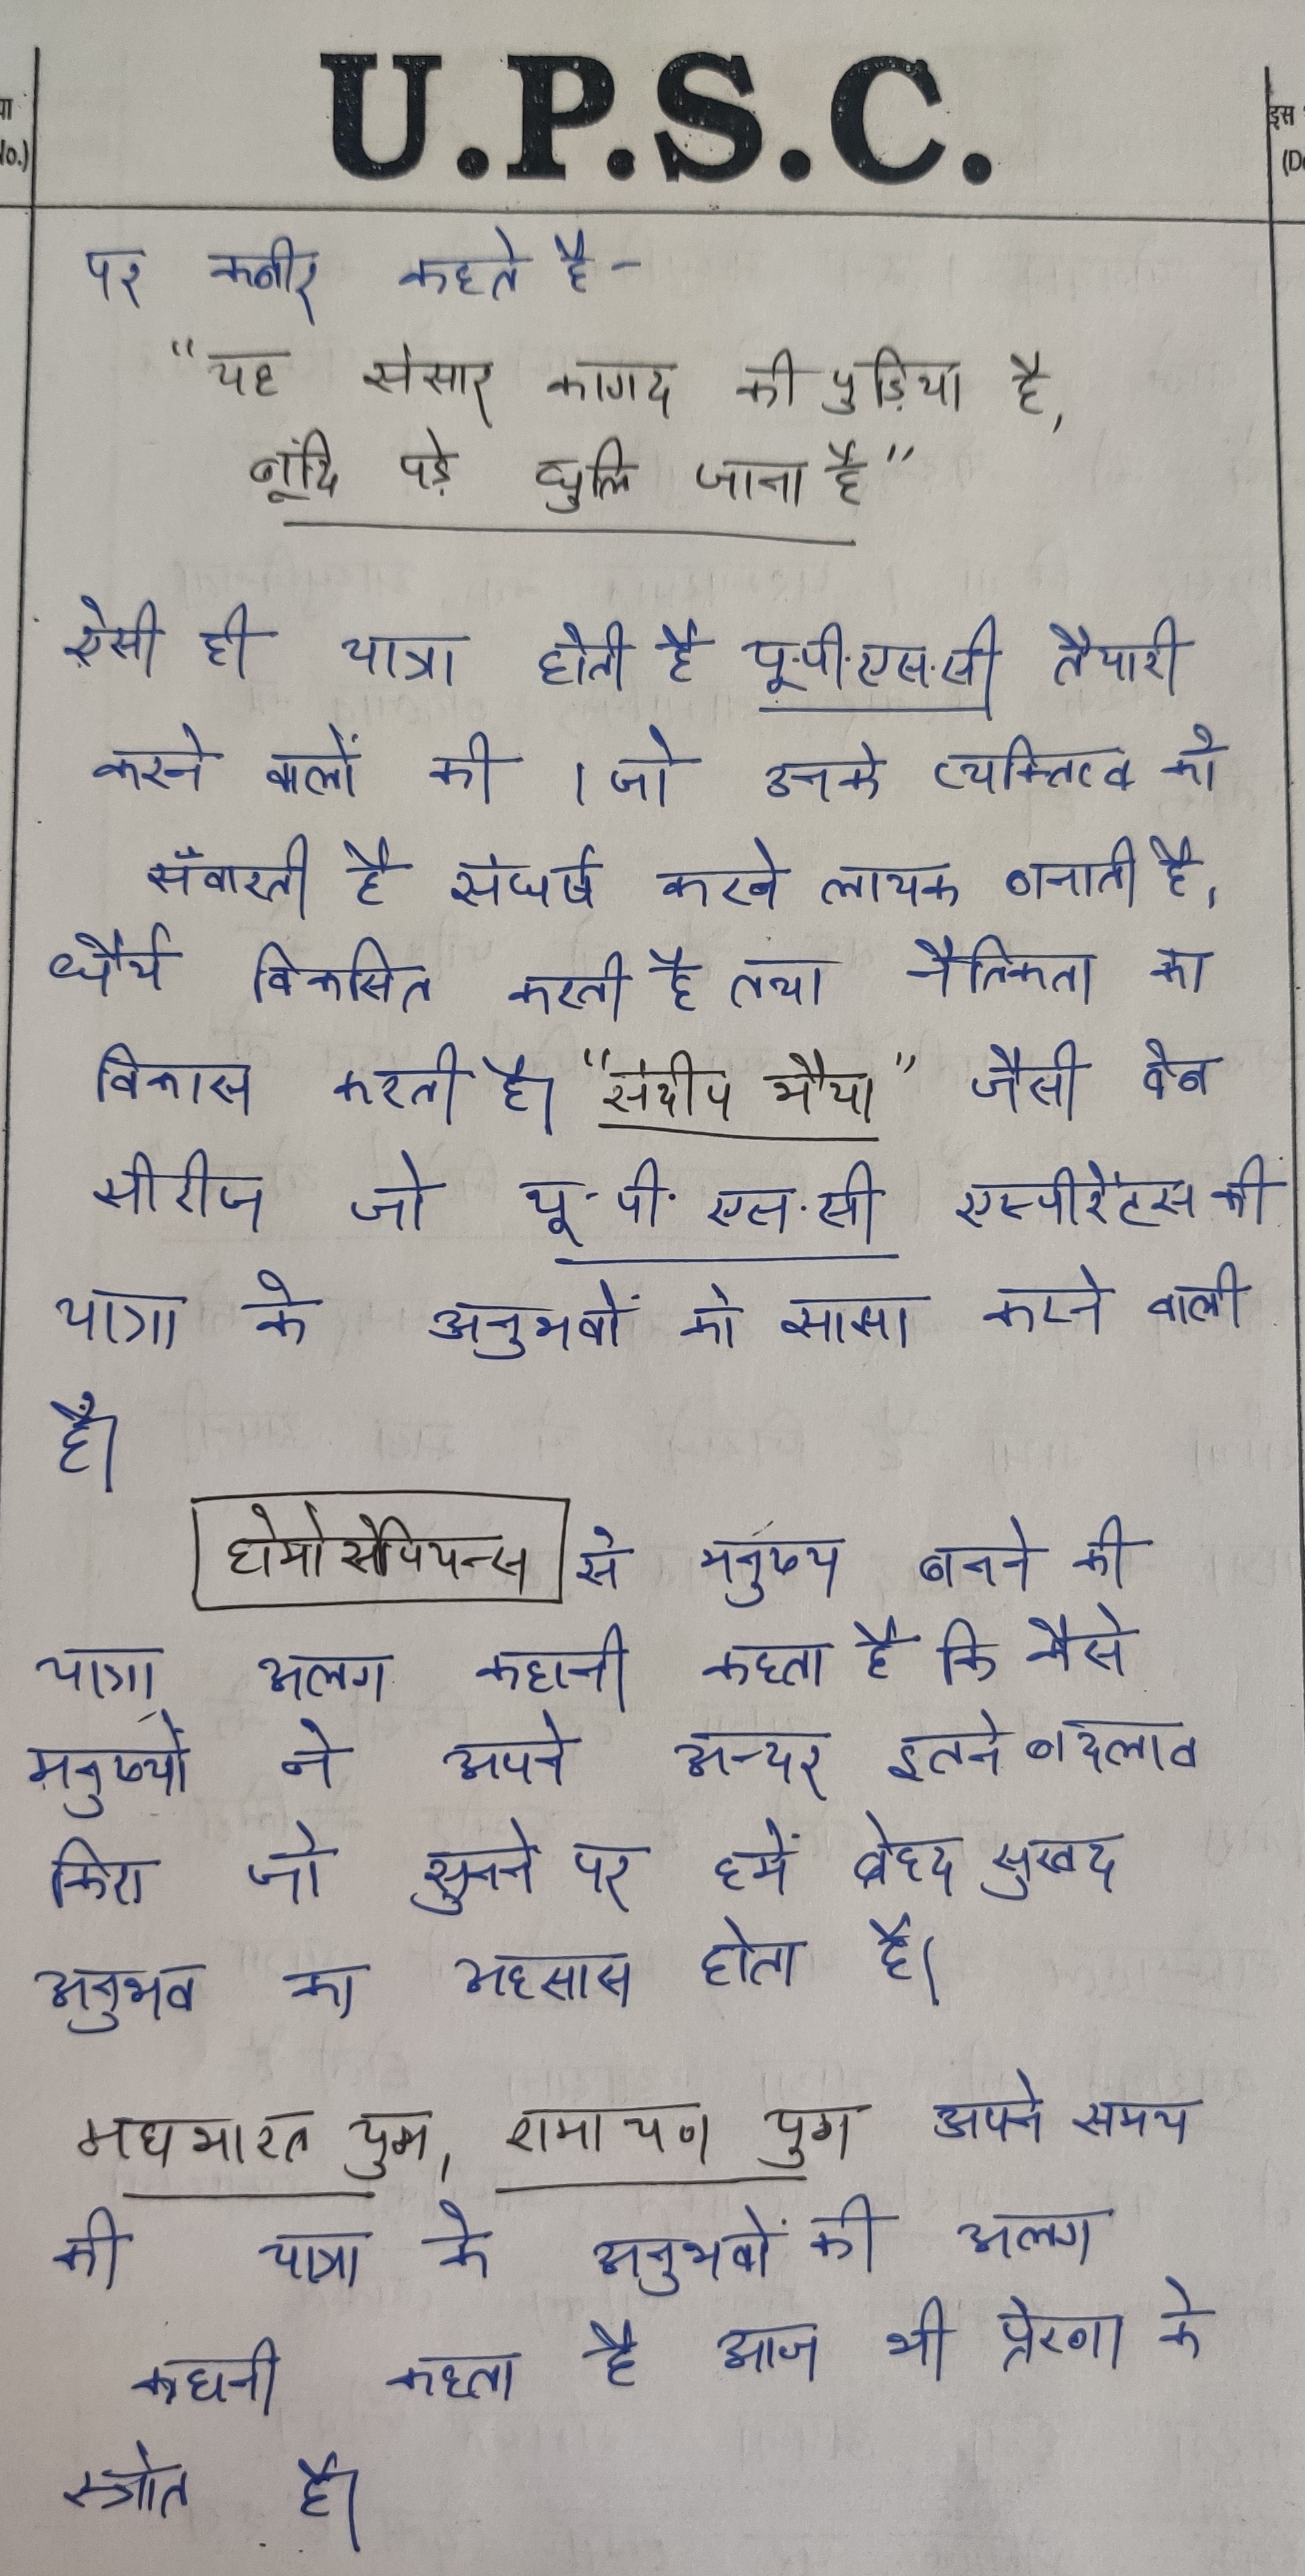 या
No.)
U.P.S.C.
इस
(Do
पर कबीर कहते है -
"यह संसार कागद की पुड़िया है,
बूंदि पड़े घुलि जाना है"
ऐसी ही यात्रा होती है यू.पी.एस.सी तैयारी
करने वालों की । जो उनके व्यक्तित्व को
सँवारती है संघर्ष करने लायक बनाती है,
धैर्य विकसित करती है तथा नैतिकता का
विकास करती है। "संदीप भैया" जैसी वेब
सीरीज जो यू.पी.एस.सी एस्पीरेंटस की
यात्रा के अनुभवों को साझा करने वाली
है।
होमोसेपियन्स से मनुष्य बनने की
यात्रा अलग कहानी कहता है कि कैसे
मनुष्यों ने अपने अन्दर इतने बदलाव
किए जो सुनने पर हमें बेहद सुखद
अनुभव का अहसास होता है।
महाभारत युग, रामायण युग अपने समय
की यात्रा के अनुभवों की अलग
कहानी कहता है आज भी प्रेरणा के
स्त्रोत है।